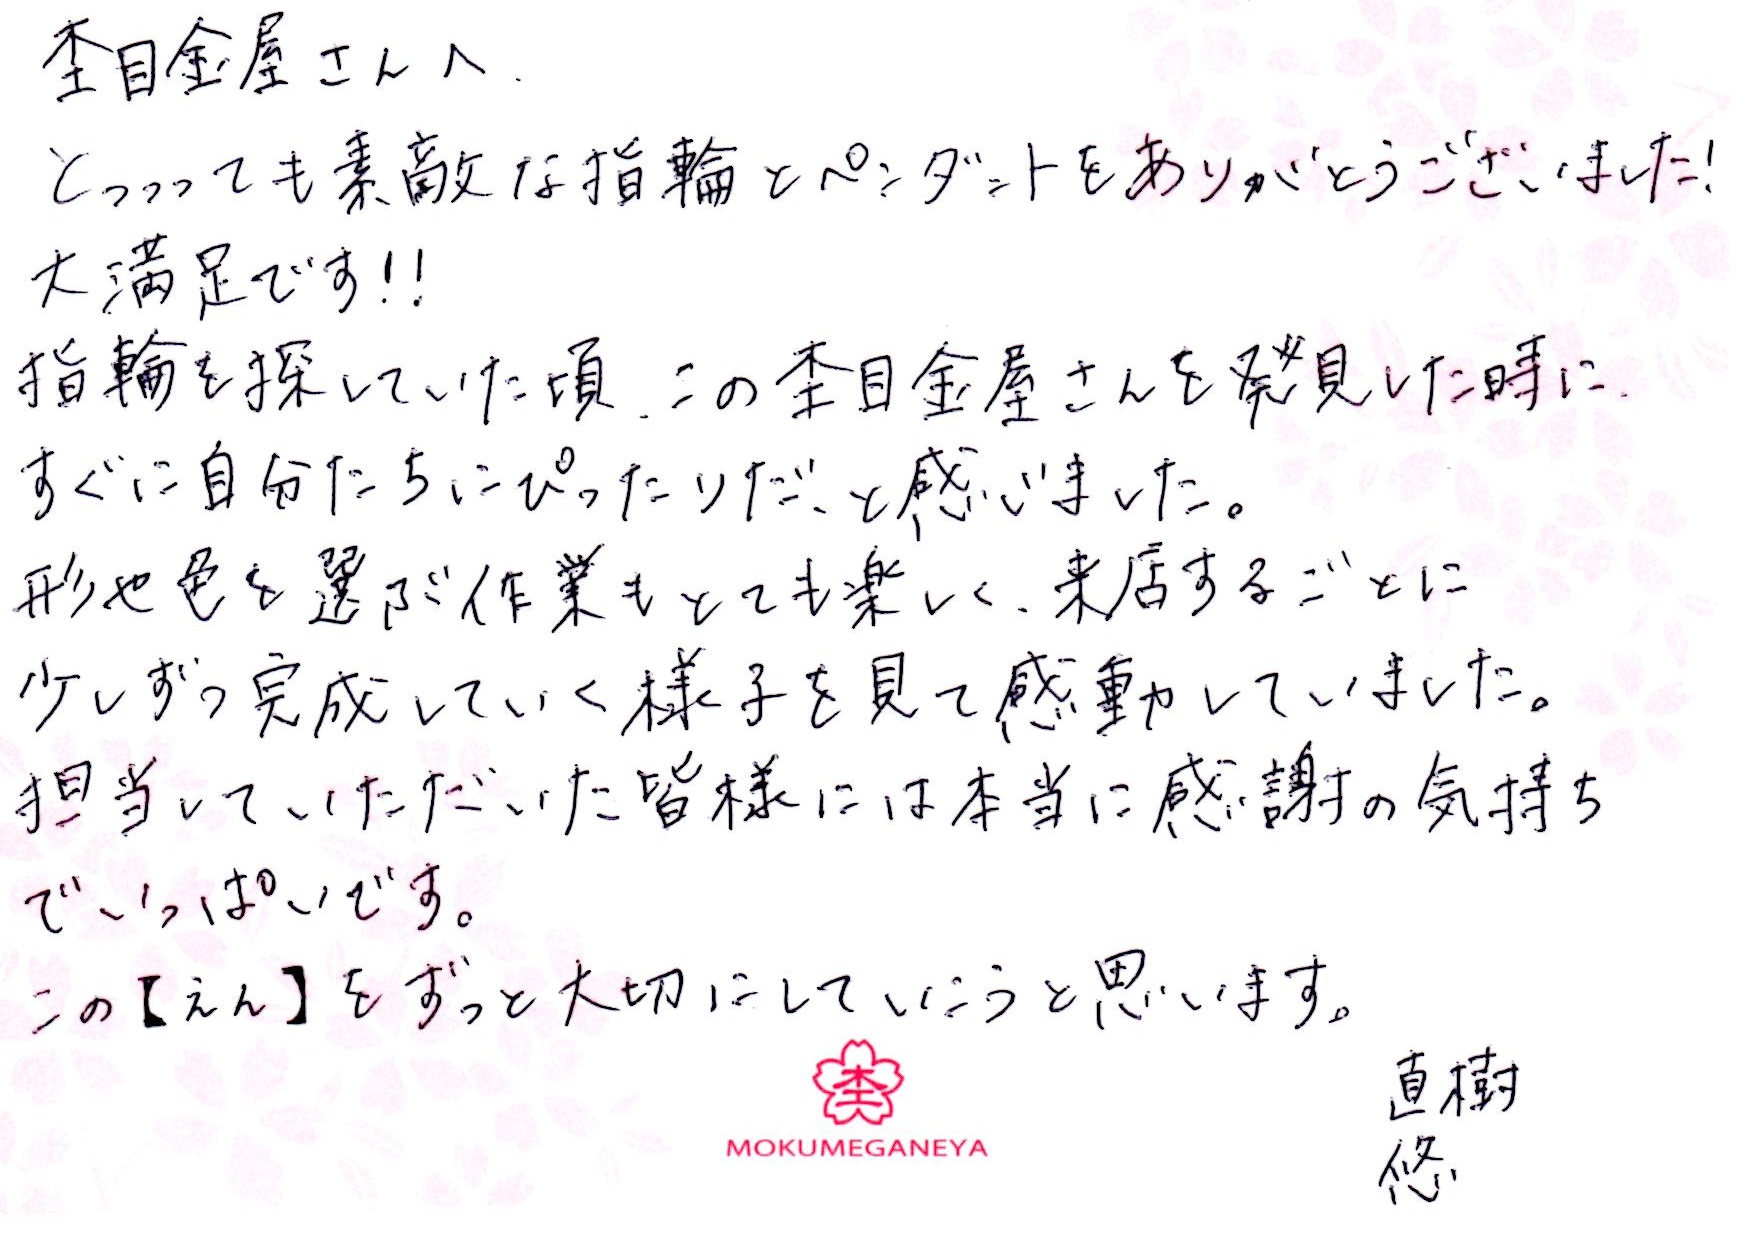 杢目金屋さんへ.
とっっっても素敵な指輪とペンダントをありがとうございました!
大満足です!!
指輪を探していた頃、この杢目金屋さんを発見した時に、
すぐに自分たちにぴったりだ、と感じました。
形や色を選ぶ作業もとても楽しく、来店するごとに
少しずつ完成していく様子を見て感動していました。
担当していただいた皆様には本当に感謝の気持ち
でいっぱいです。
この【えん】をずっと大切にしていこうと思います。
直樹
悠
杢
MOKUMEGANEYA